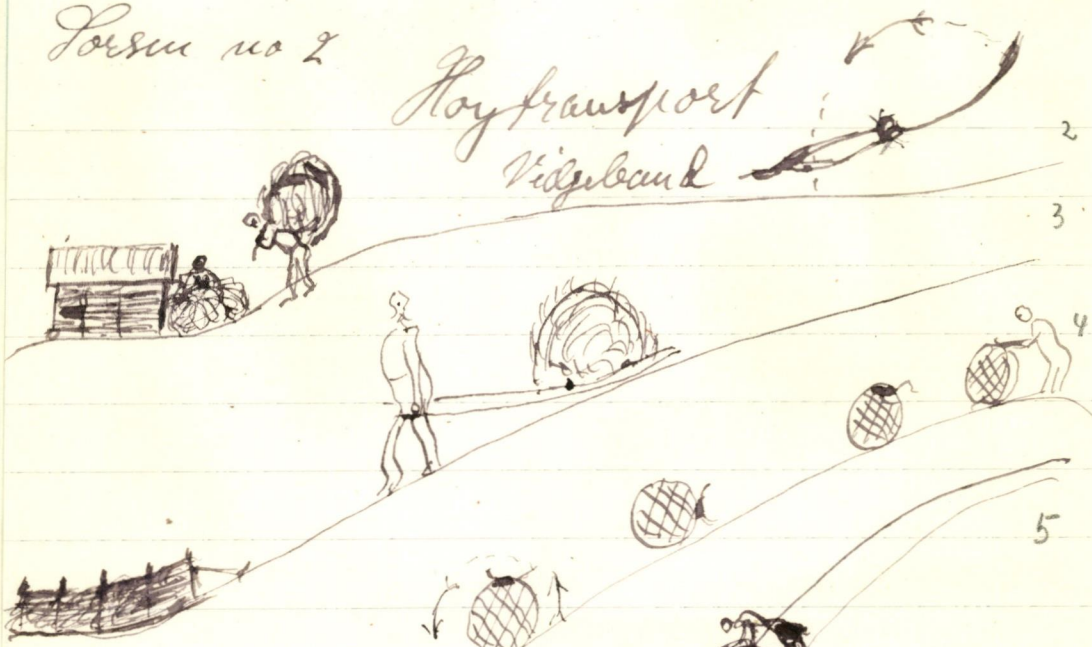 no 2
Høytransport
Vidjeband
2
3
4
5